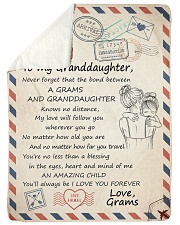 ARRIVED
To My Granddaughter,
Never forget that the bond between
A GRAMS
AND GRANDDAUGHTER
Knows no distance,
My love will follow you
wherever you go
No matter how old you are
And no matter how far you travel
You're no less than a blessing
in the eyes, heart and mind of me
AN AMAZING CHILD
You'll always be I LOVE YOU FOREVER
Love,
Grams